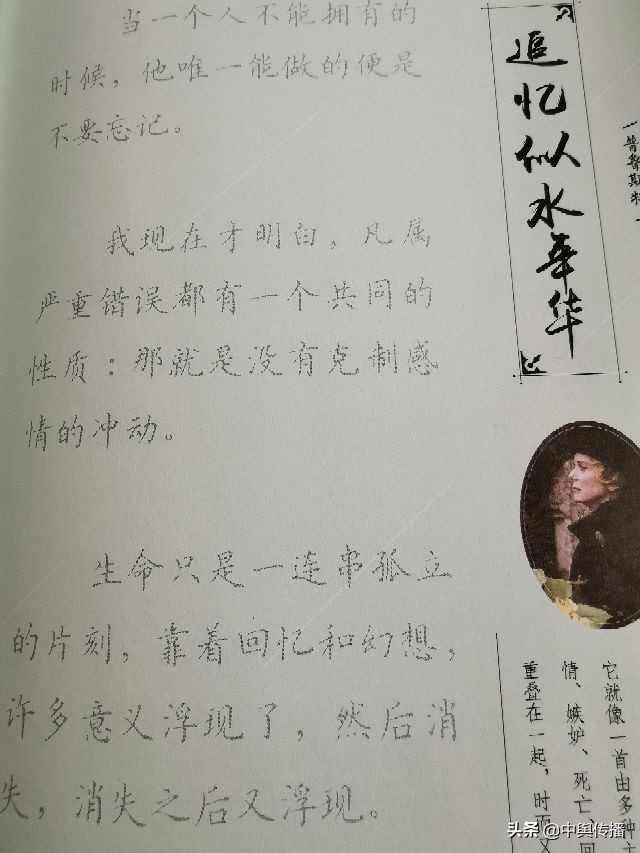 当一个人不能拥有的
时候，他唯一能做的便是
不要忘记。
我现在才明白，凡属
严重错误都有一个共同的
性质：那就是没有克制感
情的冲动。
生命只是一连串孤立
的片刻，靠着回忆和幻想，
许多意义浮现了，然后消
失，消失之后又浮现。
追忆似水年华
普鲁斯特
它就像一首由多种
情、嫉妒、死亡、回
重叠在一起，时而又
头条@中舆传播